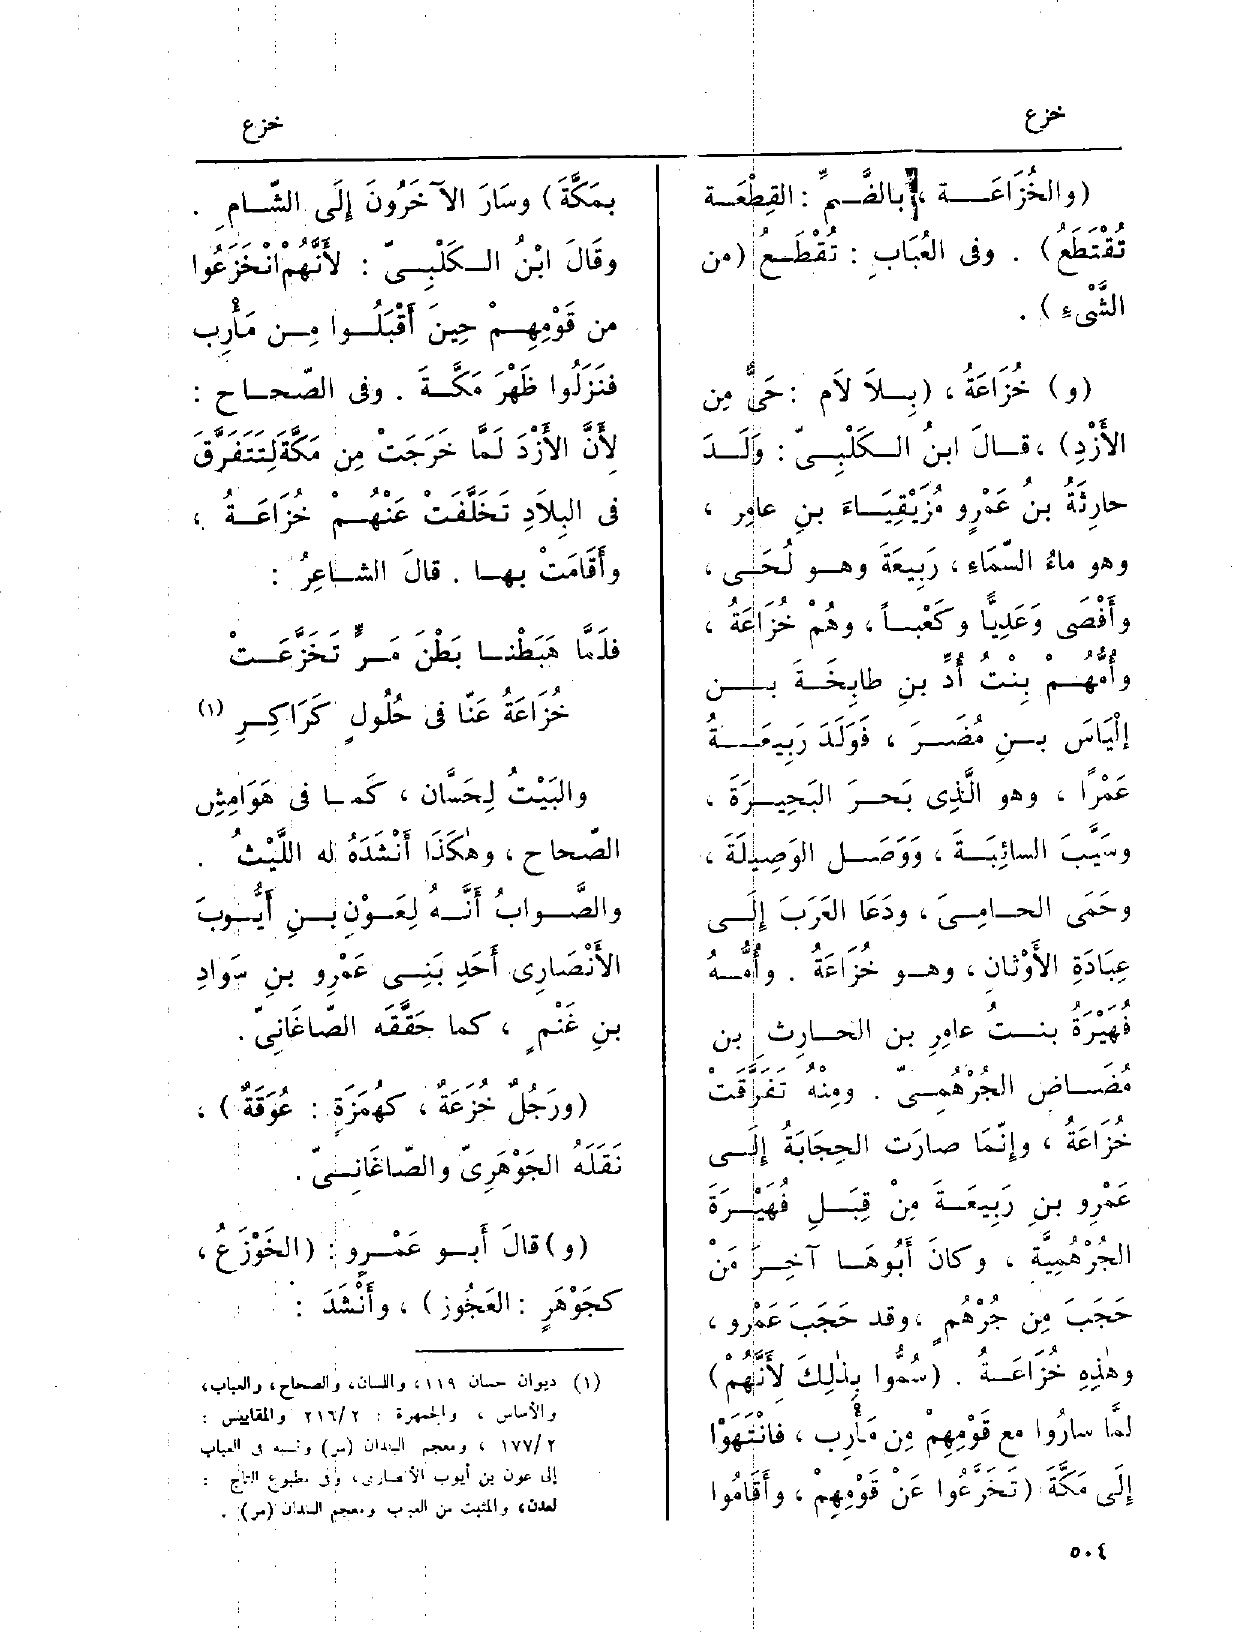 خزع
خزع
(والخُزَاعَــة ، بالضَّــمِّ : القِطْعَــة
تُقْتَطَعُ) . وفى العُبَابِ : تُقْطَــعُ (من
الشَّىْءِ ) .
(و) خُزَاعَةُ ، (بِــلاَ لاَم : حَىٌّ مِن
الأَزْدِ) ، قــالَ ابنُ الــكَلْبِــىّ : وَلَــدَ
حارِثَةُ بن عَمْرٍو مُزَيْقِيَــاءَ بنِ عامِر ،
وهو ماءُ السَّمَاءِ ، رَبِيعَةَ وهــو لُحَــى ،
وأَفْصَى وَعَدِيًّا وكَعْبــاً ، وهُمْ خُزَاعَةُ ،
وأُمُّهُــمْ بِنْتُ أُدِّ بنِ طابِخَــةَ بــن
إِلْيَاسَ بــنِ مُضَــرَ ، فَوَلَدَ رَبِيعَــةُ
عَمْرًا ، وهو الَّذِى بَحــرَ البَحِيــرَةَ ،
وسَيَّبَ السائِبَــةَ ، وَوَصَــل الوَصِيلَةَ ،
وحَمَى الحــامِــىَ ، ودَعَا العَرَبَ إِلَــى
عِبَادَةِ الأَوْثانِ ، وهــو خُزَاعَةُ . وأُمُّــهُ
فُهَيْرَةُ بنــتُ عامِرِ بن الحــارِثِ بن
مُضَــاض الجُرْهُمِــىّ . ومِنْهُ تَفَرَّقَتْ
خُزَاعَةُ ، وإِنَّمَا صارَت الحِجَابَةُ إِلَــى
عَمْرِو بنِ رَبِيعَــةَ مِنْ قِبَــلِ فُهَيْــرَةَ
الجُرْهُمِيَّة ، وكانَ أَبُوهَــا آخِــرَ مَنْ
حَجَبَ مِن جُرْهُمٍ ، وقد حَجَبَ عَمْرو ،
وهٰذِهِ خُزَاعَــةُ . (سُمُّوا بِذٰلِكَ لِأَنَّهُمْ)
لمَّا سارُوا مع قَوْمِهِمْ مِن مَأْرِب ، فانْتَهَوْا
إِلَى مَكَّةَ (تَخَزَّعُوا عَنْ قَوْمِهِمْ ، وأَقَامُوا
بمَكَّةَ) وسَارَ الآخَرُونَ إِلَى الشَّــامِ .
وقَالَ ابْنُ الــكَلْبِــىّ : لأَنَّهُم انْخَزَعُوا
من قَوْمِهِــمْ حِينَ أَقْبَلُــوا مِــن مَأْرِب
فنَزَلُوا ظَهْرَ مَكَّــةَ . وفى الصّحــاح :
لِأَنَّ الأَزْدَ لَمَّا خَرَجَتْ مِن مَكَّةَ لِتَتَفَرَّقَ
فى البِلاَدِ تَخَلَّفَتْ عَنْهُــمْ خُزَاعَــةُ ،
وأَقَامَتْ بهــا . قالَ الشــاعِرُ :
فلَمَّا هَبَطْنــا بَطْنَ مَــرٍّ تَخَزَّعَــتْ
خُزَاعَةُ عَنّا فى حُلُولٍ كَرَاكِــرِ (١)
والبَيْتُ لِحَسَّان ، كَمــا فى هَوَامِشِ
الصّحاح ، وهٰكَذَا أَنْشَدَهُ له اللَّيْثُ .
والصَّــوابُ أَنَّــهُ لِعَوْنِ بــنِ أَيُّــوبَ
الأَنْصَارِى أَحَدِ بَنِــى عَمْرِو بنِ سَوادِ
بنِ غَنْمٍ ، كما حَقَّقَه الصّاغَانِىّ .
(ورَجُلٌ خُزَعَةٌ ، كهُمَزَةٍ : عُوَقَةٌ ) ،
نَقَلَهُ الجَوْهَرِىّ والصّاغَانِــىّ .
(و) قالَ أَبــو عَمْــرو : (الخَوْزَعُ ،
كجَوْهَرٍ : العَجُوز) ، وأَنْشَدَ :
(١) ديوان حسان ١١٩ ، واللسان، والصحاح، والعباب،
والأساس ، والجمهرة : ٢١٦/٢ والمقاييس :
١٧٧/٢ ، ومعجم البلدان (مر) ونسبه فى العباب
إلى عون بن أيوب الأنصارى، وفى مطبوع التاج :
لعدن، والمثبت من العباب ومعجم البلدان (مر) .
٥٠٤